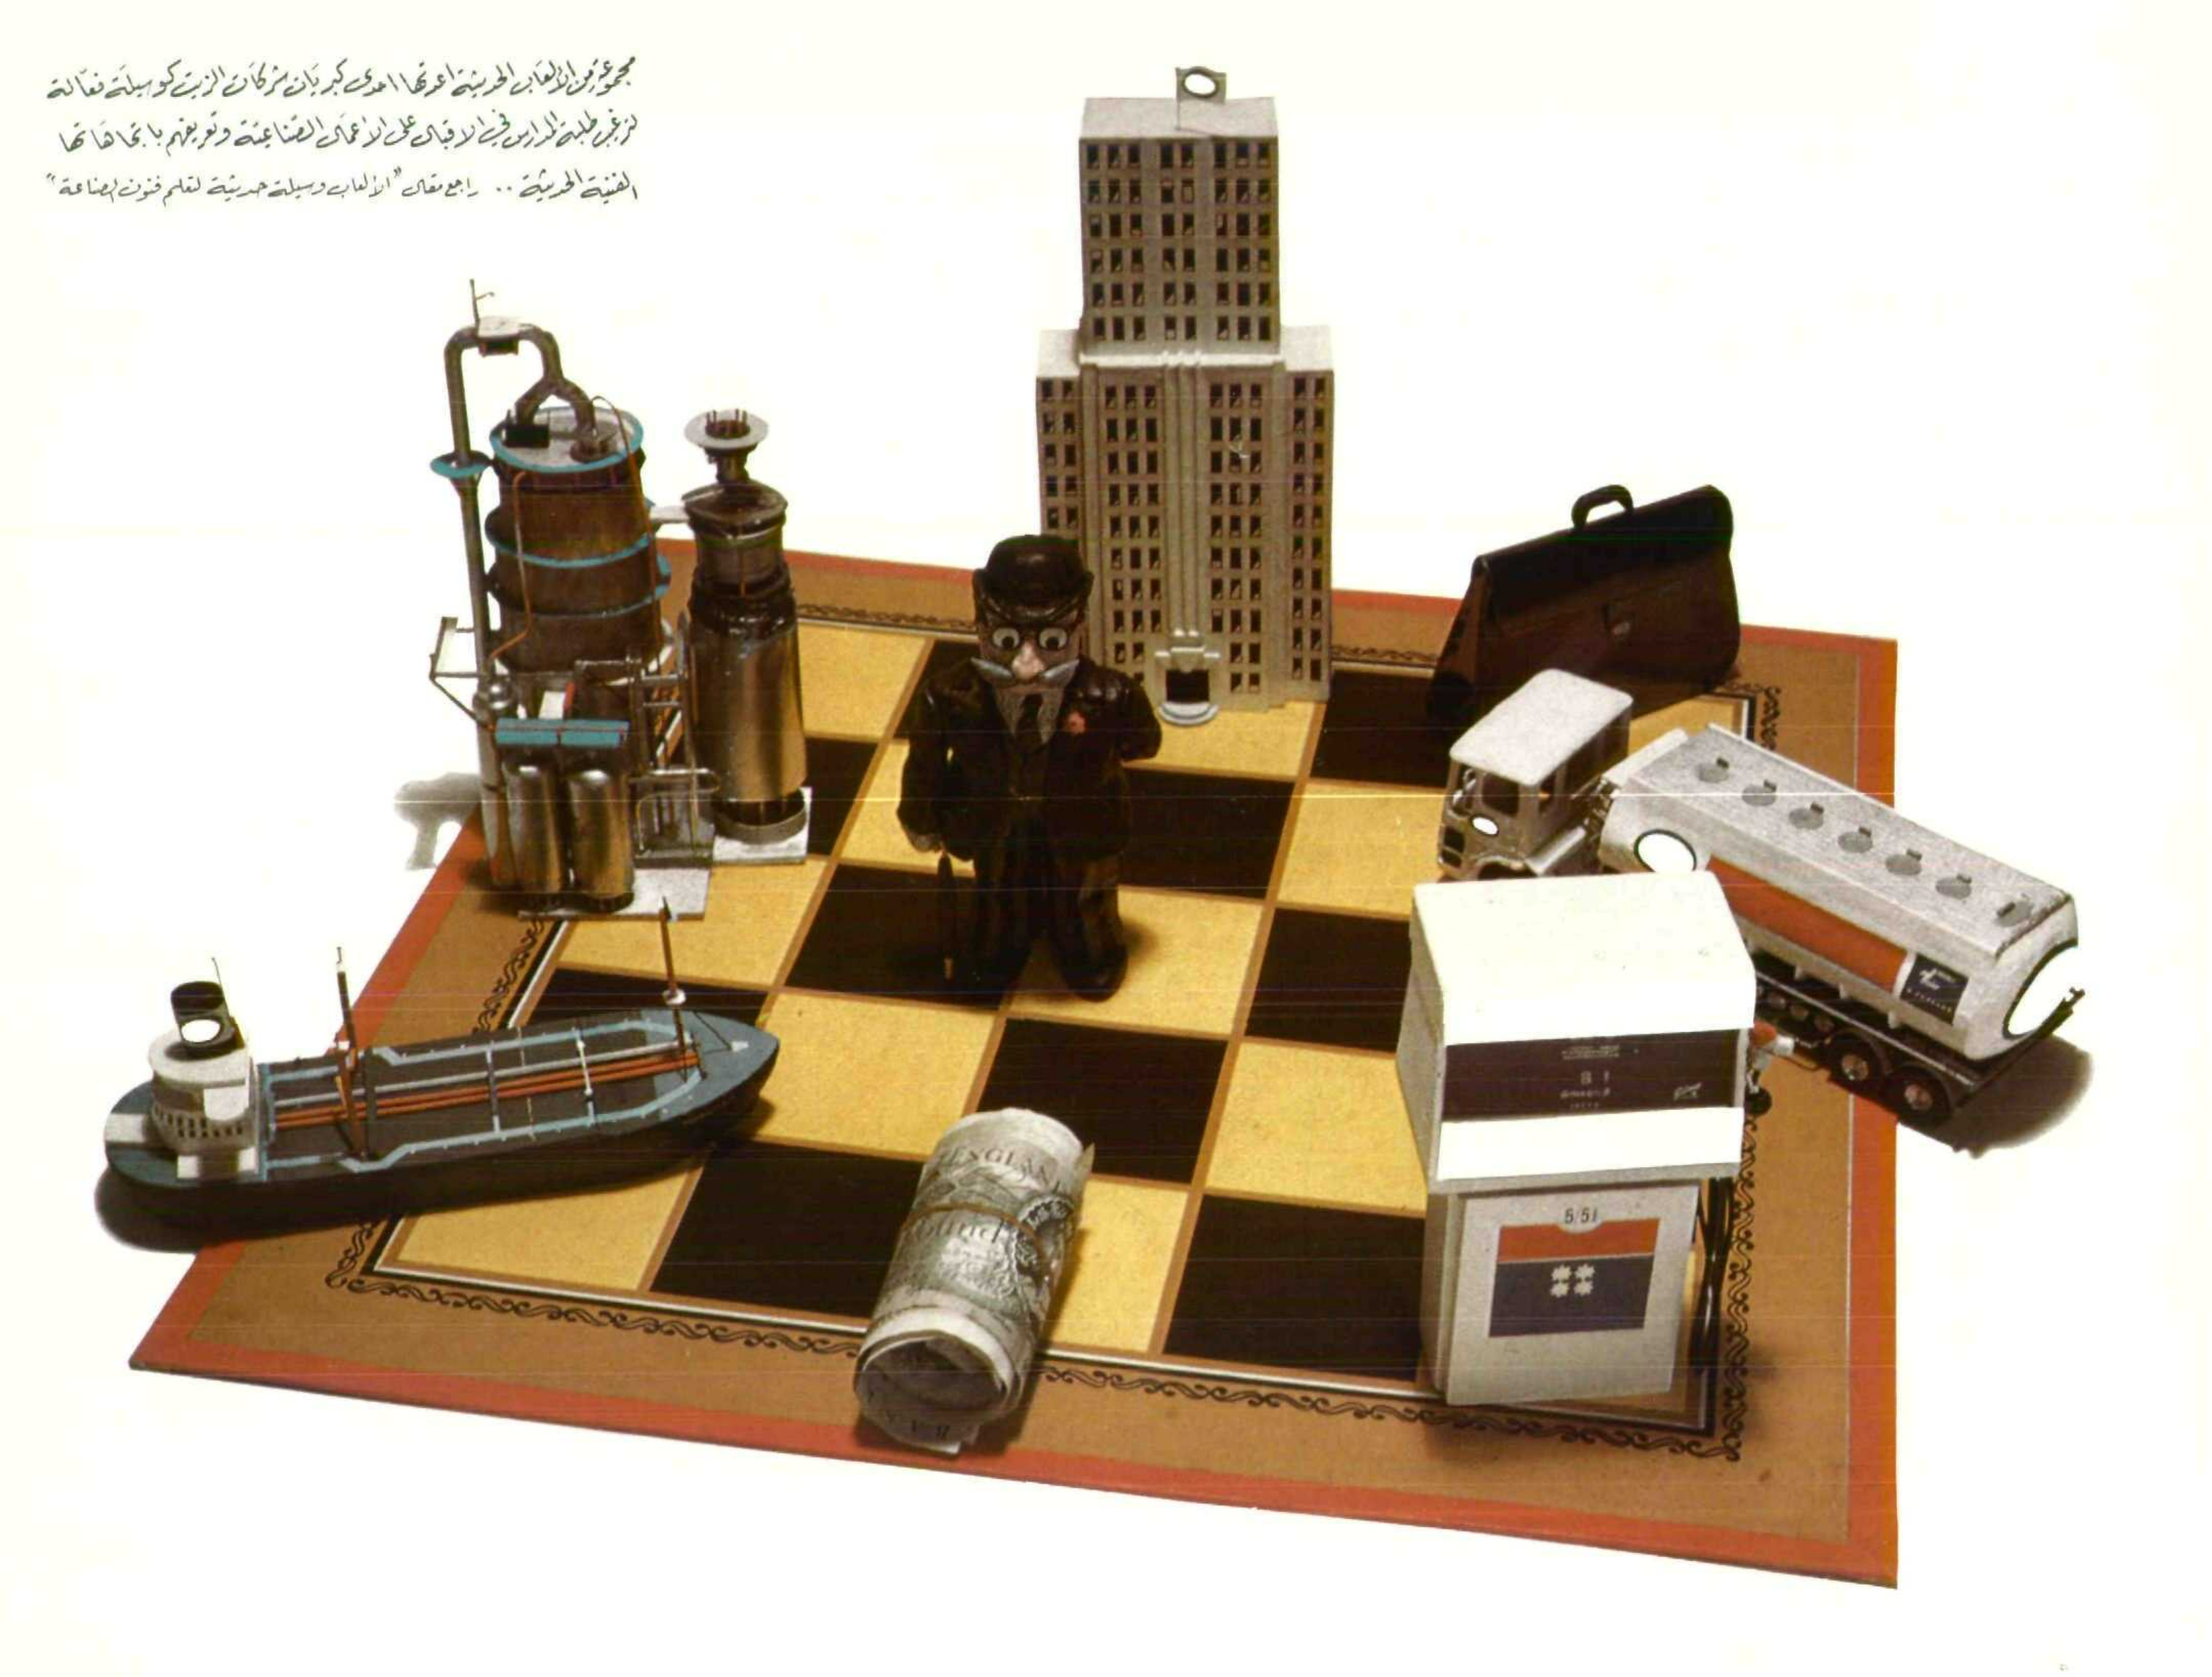 مجموعة من الألعاب الحديثة أعدتها احدى كبريات شركات الزيت كوسيلة فعّالة
لترغيب طلبة المدارس في الاقبال على الأعمال الصناعية وتعريفهم باتجاهاتها
الفنية الحديثة .. راجع مقال "الألعاب وسيلة حديثة لتعلم فنون الصناعة"
ENGLAND
5/51